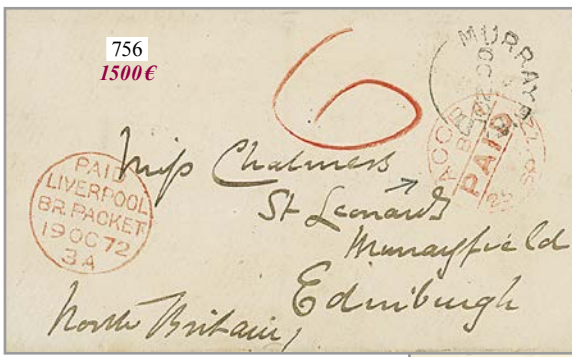 756
1500€
6
MURRAYF
ACCR
PAID
PAID
LIVERPOOL
BR. PACKET
19 OC 72
3A
Miss Chalmers
St Leonards
Murrayfield
Edinburgh
North Britain,